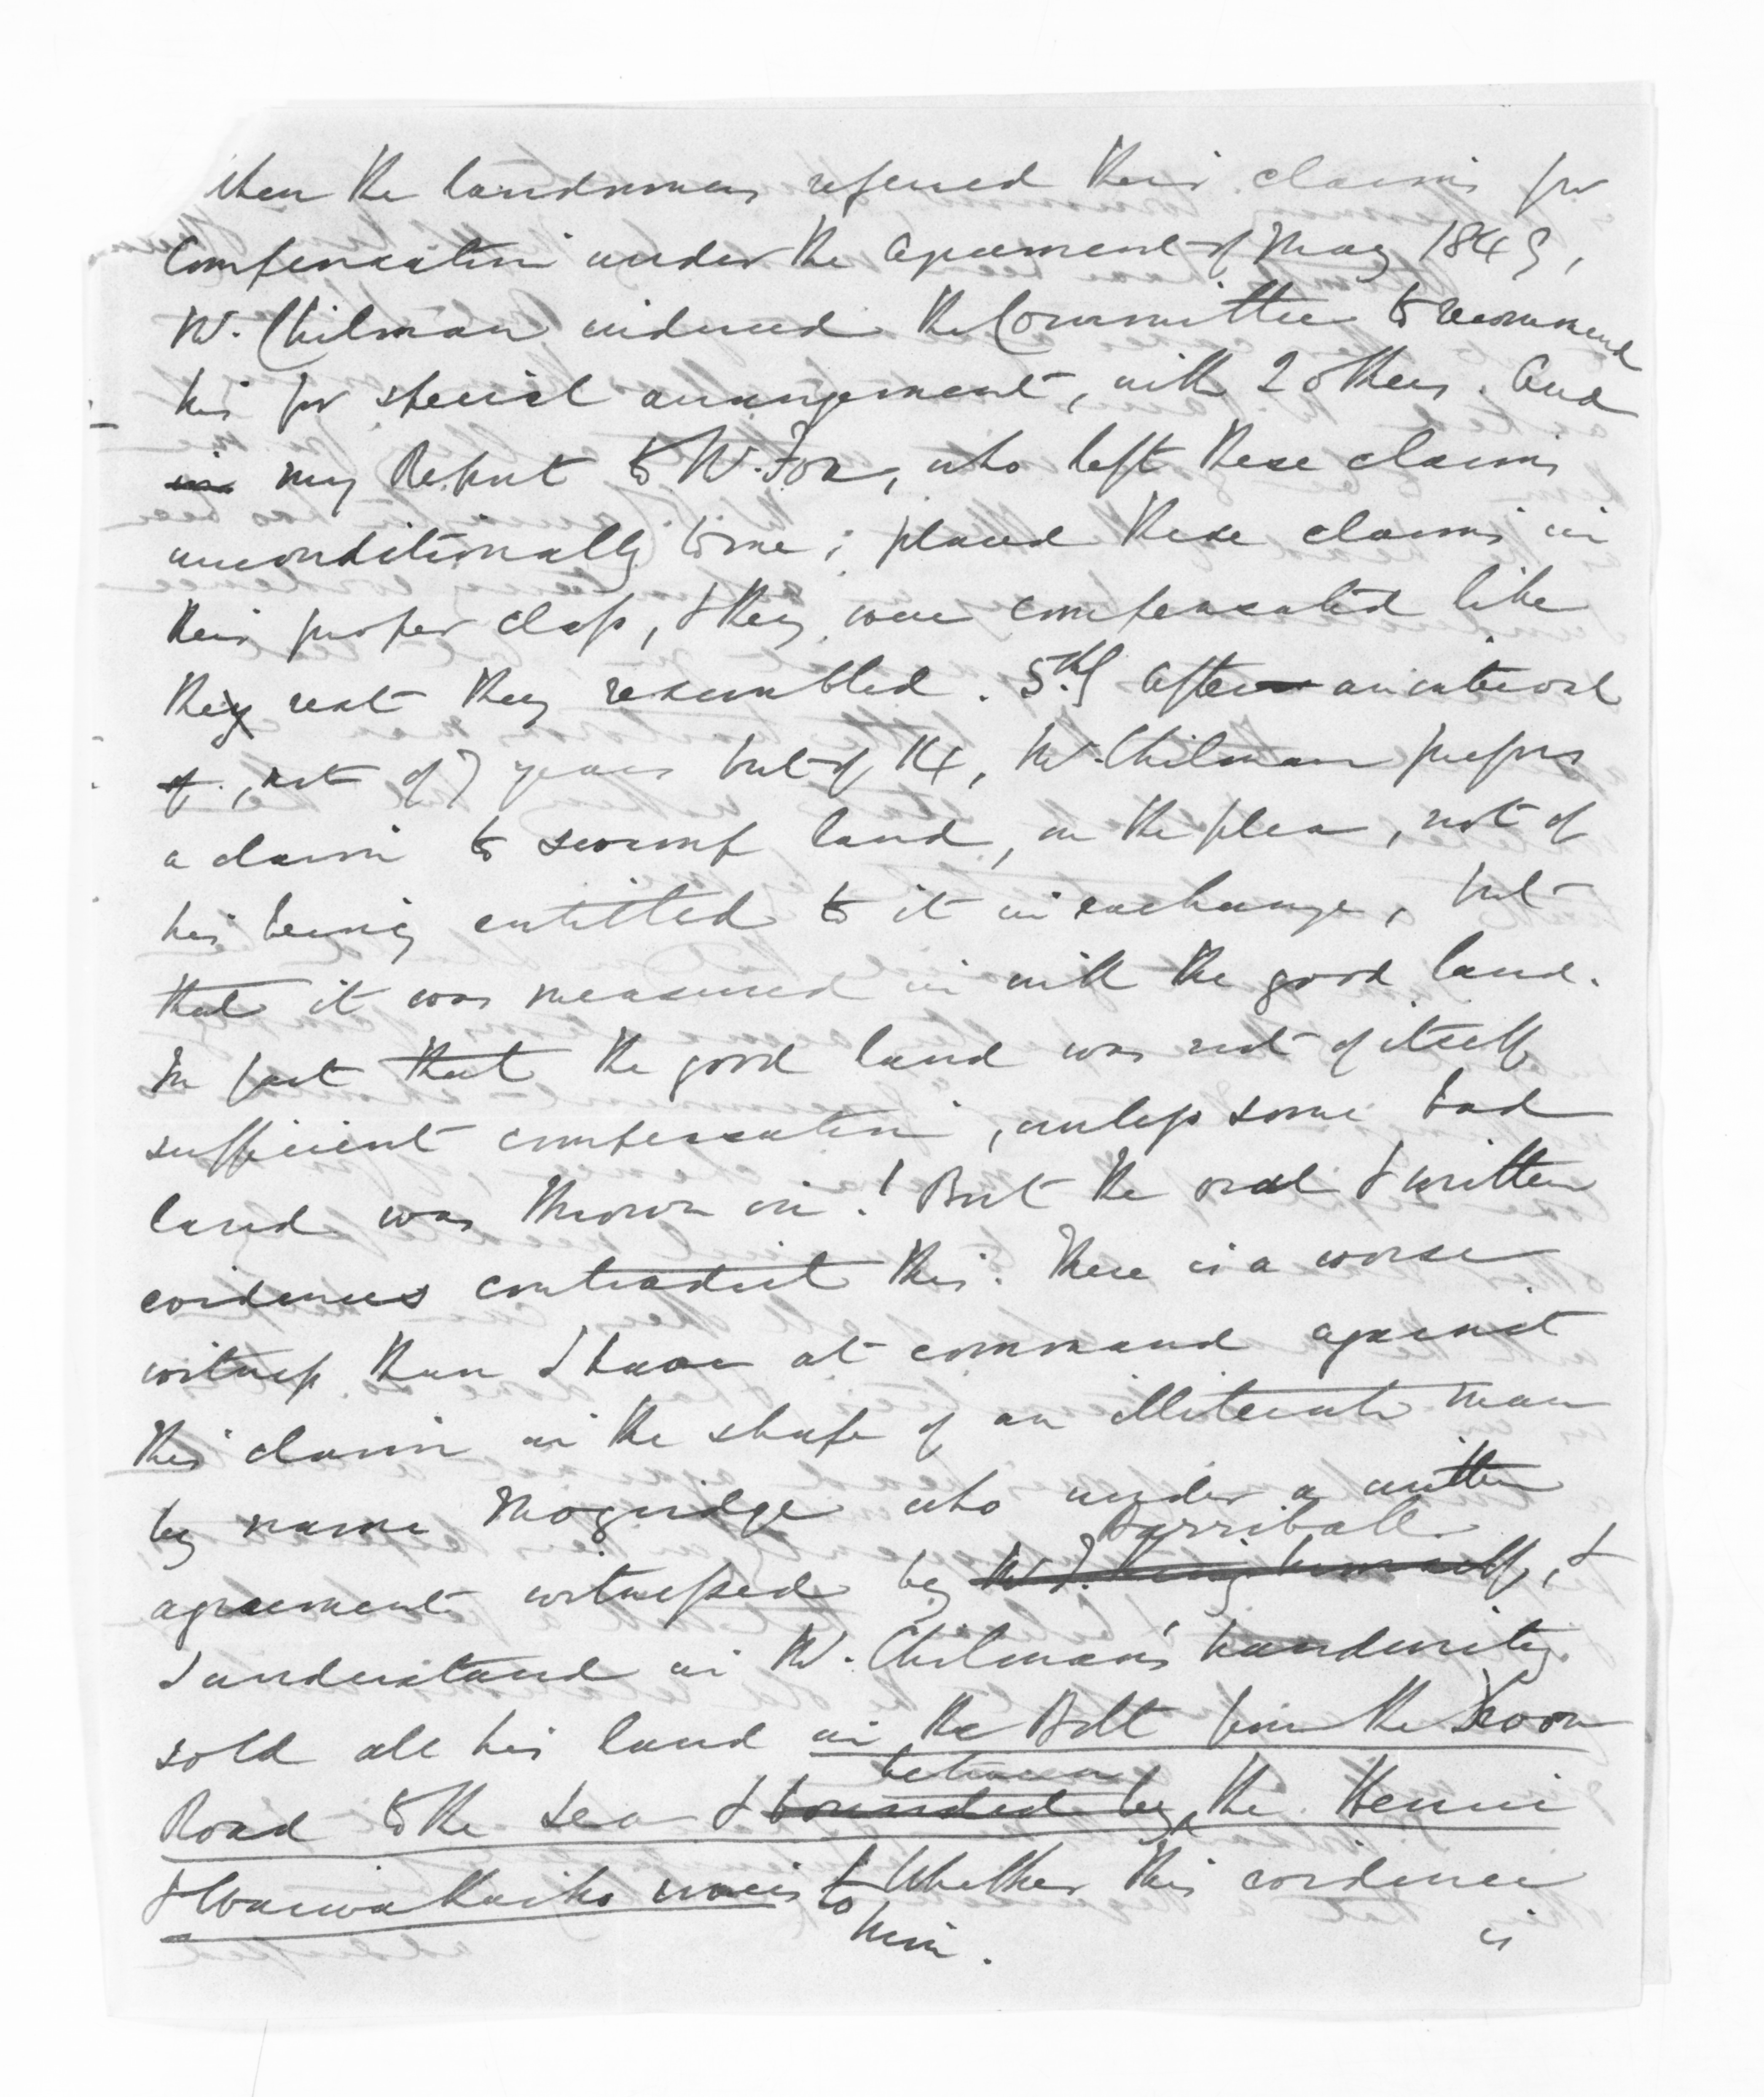 when the landowners referred their claims for
Compensation under the Agreement of May 1849,
Mr. Chilman induced the Committee to recommend
his for special arrangement, with 2 others. And
in my Report to Mr. Fox, who left these claims
unconditionally to me; placed these claims in
their proper class, & they were compensated like
they rest they resembled. 5thly After an interval
of, not of 7 years but of 14, Mr. Chilman prefers
a claim to swamp land, on the plea, not of
his being entitled to it in exchange, but
that it was measured in with the good land.
In fact that the good land was not of itself
sufficient compensation, unless some bad
land was thrown in! But the oral & written
evidences contradict this. There is a worse
witness than I have at command against
this claim in the shape of an illiterate man
by name Mogridge who under a written
Dorriball
agreement witnessed by Mr. J. King himself, &
I understand in Mr. Chilman's handwriting
sold all his land in the Belt from the Devon
between
Road to the sea & bounded by the Henui
& Waiwakaiho rivers to Whether this evidence
him. is